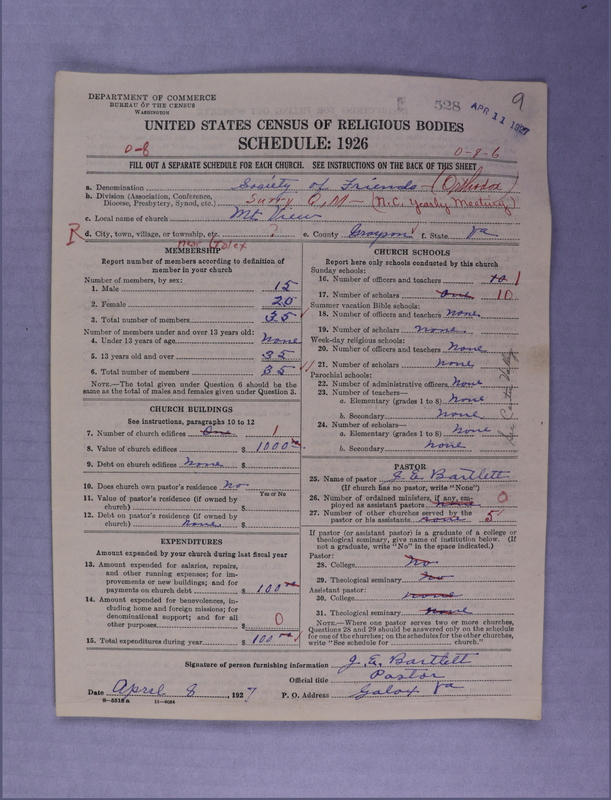 528 APR 11 1927 9
DEPARTMENT OF COMMERCE
BUREAU OF THE CENSUS
WASHINGTON
UNITED STATES CENSUS OF RELIGIOUS BODIES
SCHEDULE: 1926
0-8 0-8-6
FILL OUT A SEPARATE SCHEDULE FOR EACH CHURCH. SEE INSTRUCTIONS ON THE BACK OF THIS SHEET
a. Denomination Society of Friends (Orthodox)
b. Division (Association, Conference, Diocese, Presbytery, Synod, etc.) Surry Q.M - (N.C. Yearly Meeting)
c. Local name of church Mt View
R d. City, town, village, or township, etc. ? e. County Grayson f. State Va
near Galax
MEMBERSHIP
Report number of members according to definition of
member in your church
Number of members, by sex:
1. Male 15
2. Female 20
3. Total number of members 35
Number of members under and over 13 years old:
4. Under 13 years of age None
5. 13 years old and over 35
6. Total number of members 35
NOTE.—The total given under Question 6 should be the
same as the total of males and females given under Question 3.
CHURCH BUILDINGS
See instructions, paragraphs 10 to 12
7. Number of church edifices One 1
8. Value of church edifices $ 1000
9. Debt on church edifices None $
10. Does church own pastor's residence No
Yes or No
11. Value of pastor's residence (if owned by
church) $
12. Debt on pastor's residence (if owned by
church) none $
EXPENDITURES
Amount expended by your church during last fiscal year
13. Amount expended for salaries, repairs,
and other running expenses; for im-
provements or new buildings; and for
payments on church debt $ 100
14. Amount expended for benevolences, in-
cluding home and foreign missions; for
denominational support; and for all
other purposes $ 0
15. Total expenditures during year $ 100
CHURCH SCHOOLS
Report here only schools conducted by this church
Sunday schools:
16. Number of officers and teachers 10 1
17. Number of scholars One 10
Summer vacation Bible schools:
18. Number of officers and teachers None
19. Number of scholars None
Week-day religious schools:
20. Number of officers and teachers None
21. Number of scholars None
Parochial schools:
22. Number of administrative officers None
23. Number of teachers—
a. Elementary (grades 1 to 8) None
b. Secondary None
24. Number of scholars—
a. Elementary (grades 1 to 8) None
b. Secondary none
PASTOR
25. Name of pastor J. E. Bartlett
(If church has no pastor, write "None")
26. Number of ordained ministers, if any, em-
ployed as assistant pastors none 0
27. Number of other churches served by the
pastor or his assistants none 5
If pastor (or assistant pastor) is a graduate of a college or
theological seminary, give name of institution below. (If
not a graduate, write "No" in the space indicated.)
Pastor:
28. College No
29. Theological seminary No
Assistant pastor:
30. College none
31. Theological seminary none
NOTE.—Where one pastor serves two or more churches,
Questions 28 and 29 should be answered only on the schedule
for one of the churches; on the schedules for the other churches,
write "See schedule for church."
Signature of person furnishing information J. E. Bartlett
Official title Pastor
Date April 8, 1927 P. O. Address Galax Va
8-5518a 11-9034